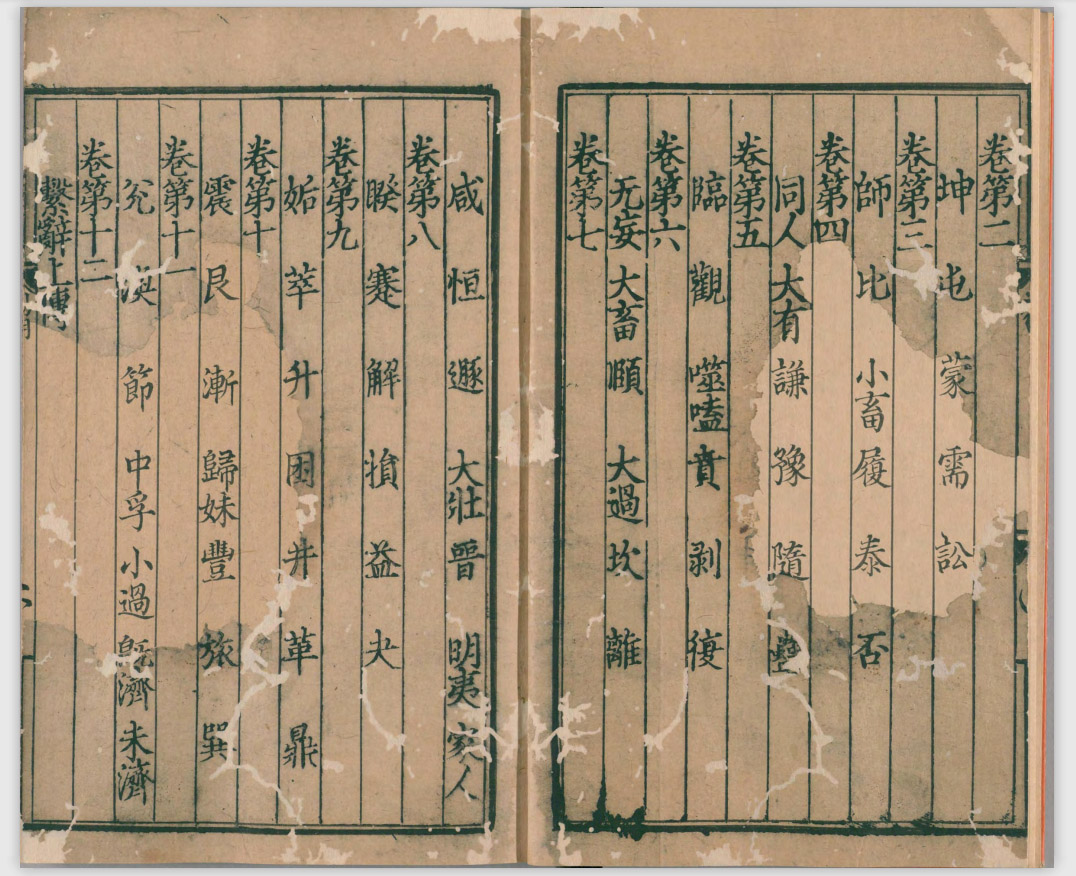 卷第二
坤 屯 蒙 需 訟
卷第三
師 比 小畜 履 泰 否
卷第四
同人 大有 謙 豫 隨 蠱
卷第五
臨 觀 噬嗑 賁 剥 復
卷第六
无妄 大畜 頤 大過 坎 離
卷第七
咸 恒 遯 大壯 晉 明夷 家人
卷第八
睽 蹇 解 損 益 夬
卷第九
姤 萃 升 困 井 革 鼎
卷第十
震 艮 漸 歸妹 豐 旅 巽
卷第十一
兊 渙 節 中孚 小過 既濟 未濟
卷第十二
繫辭上傳